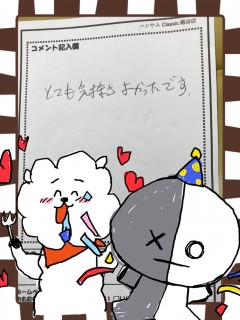 ハンサム Classic 越谷店
コメント記入欄
とても気持ち よかったです。